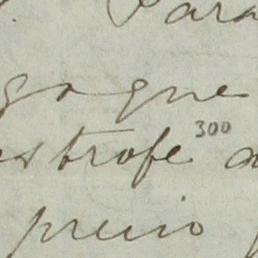 Para
gogne
estrofe 300 a
preuio